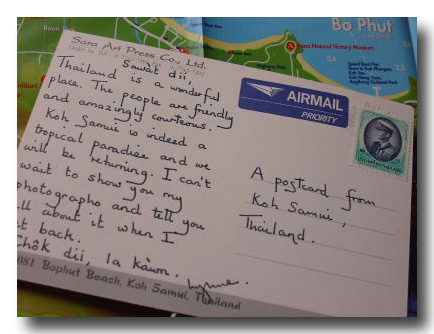 Bo Phut
Samui Natural History Museum
Sara Art Press Co., Ltd.
Sawat dii,
Thailand is a wonderful
place. The people are friendly
and amazingly courteous.
Koh Samui is indeed a
tropical paradise and we
will be returning. I can't
wait to show you my
photographs and tell you
all about it when I
get back.
Chôk dii, la kàwn.
081 Bophut Beach, Koh Samui, Thailand
AIRMAIL
PRIORITY
A postcard from
Koh Samui,
Thailand.